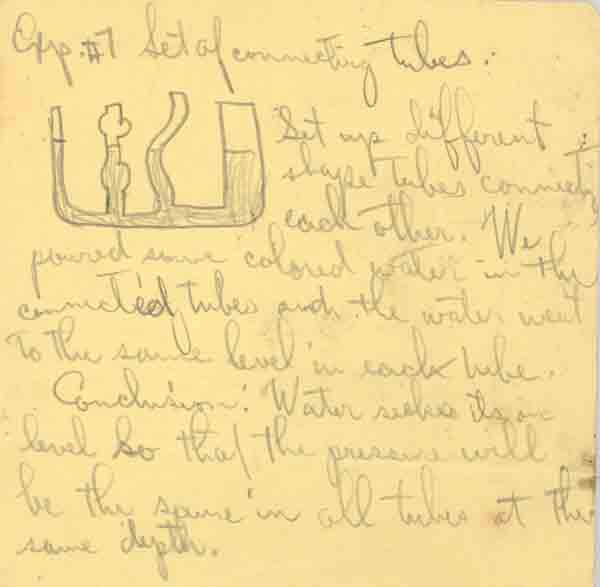 Exp. #7 Set of connecting tubes.
Set up different
shape tubes connecting
each other. We
poured some colored water in the
connected tubes and the water went
to the same level in each tube.
Conclusion: Water seeks its own
level so that the pressure will
be the same in all tubes at the
same depth.